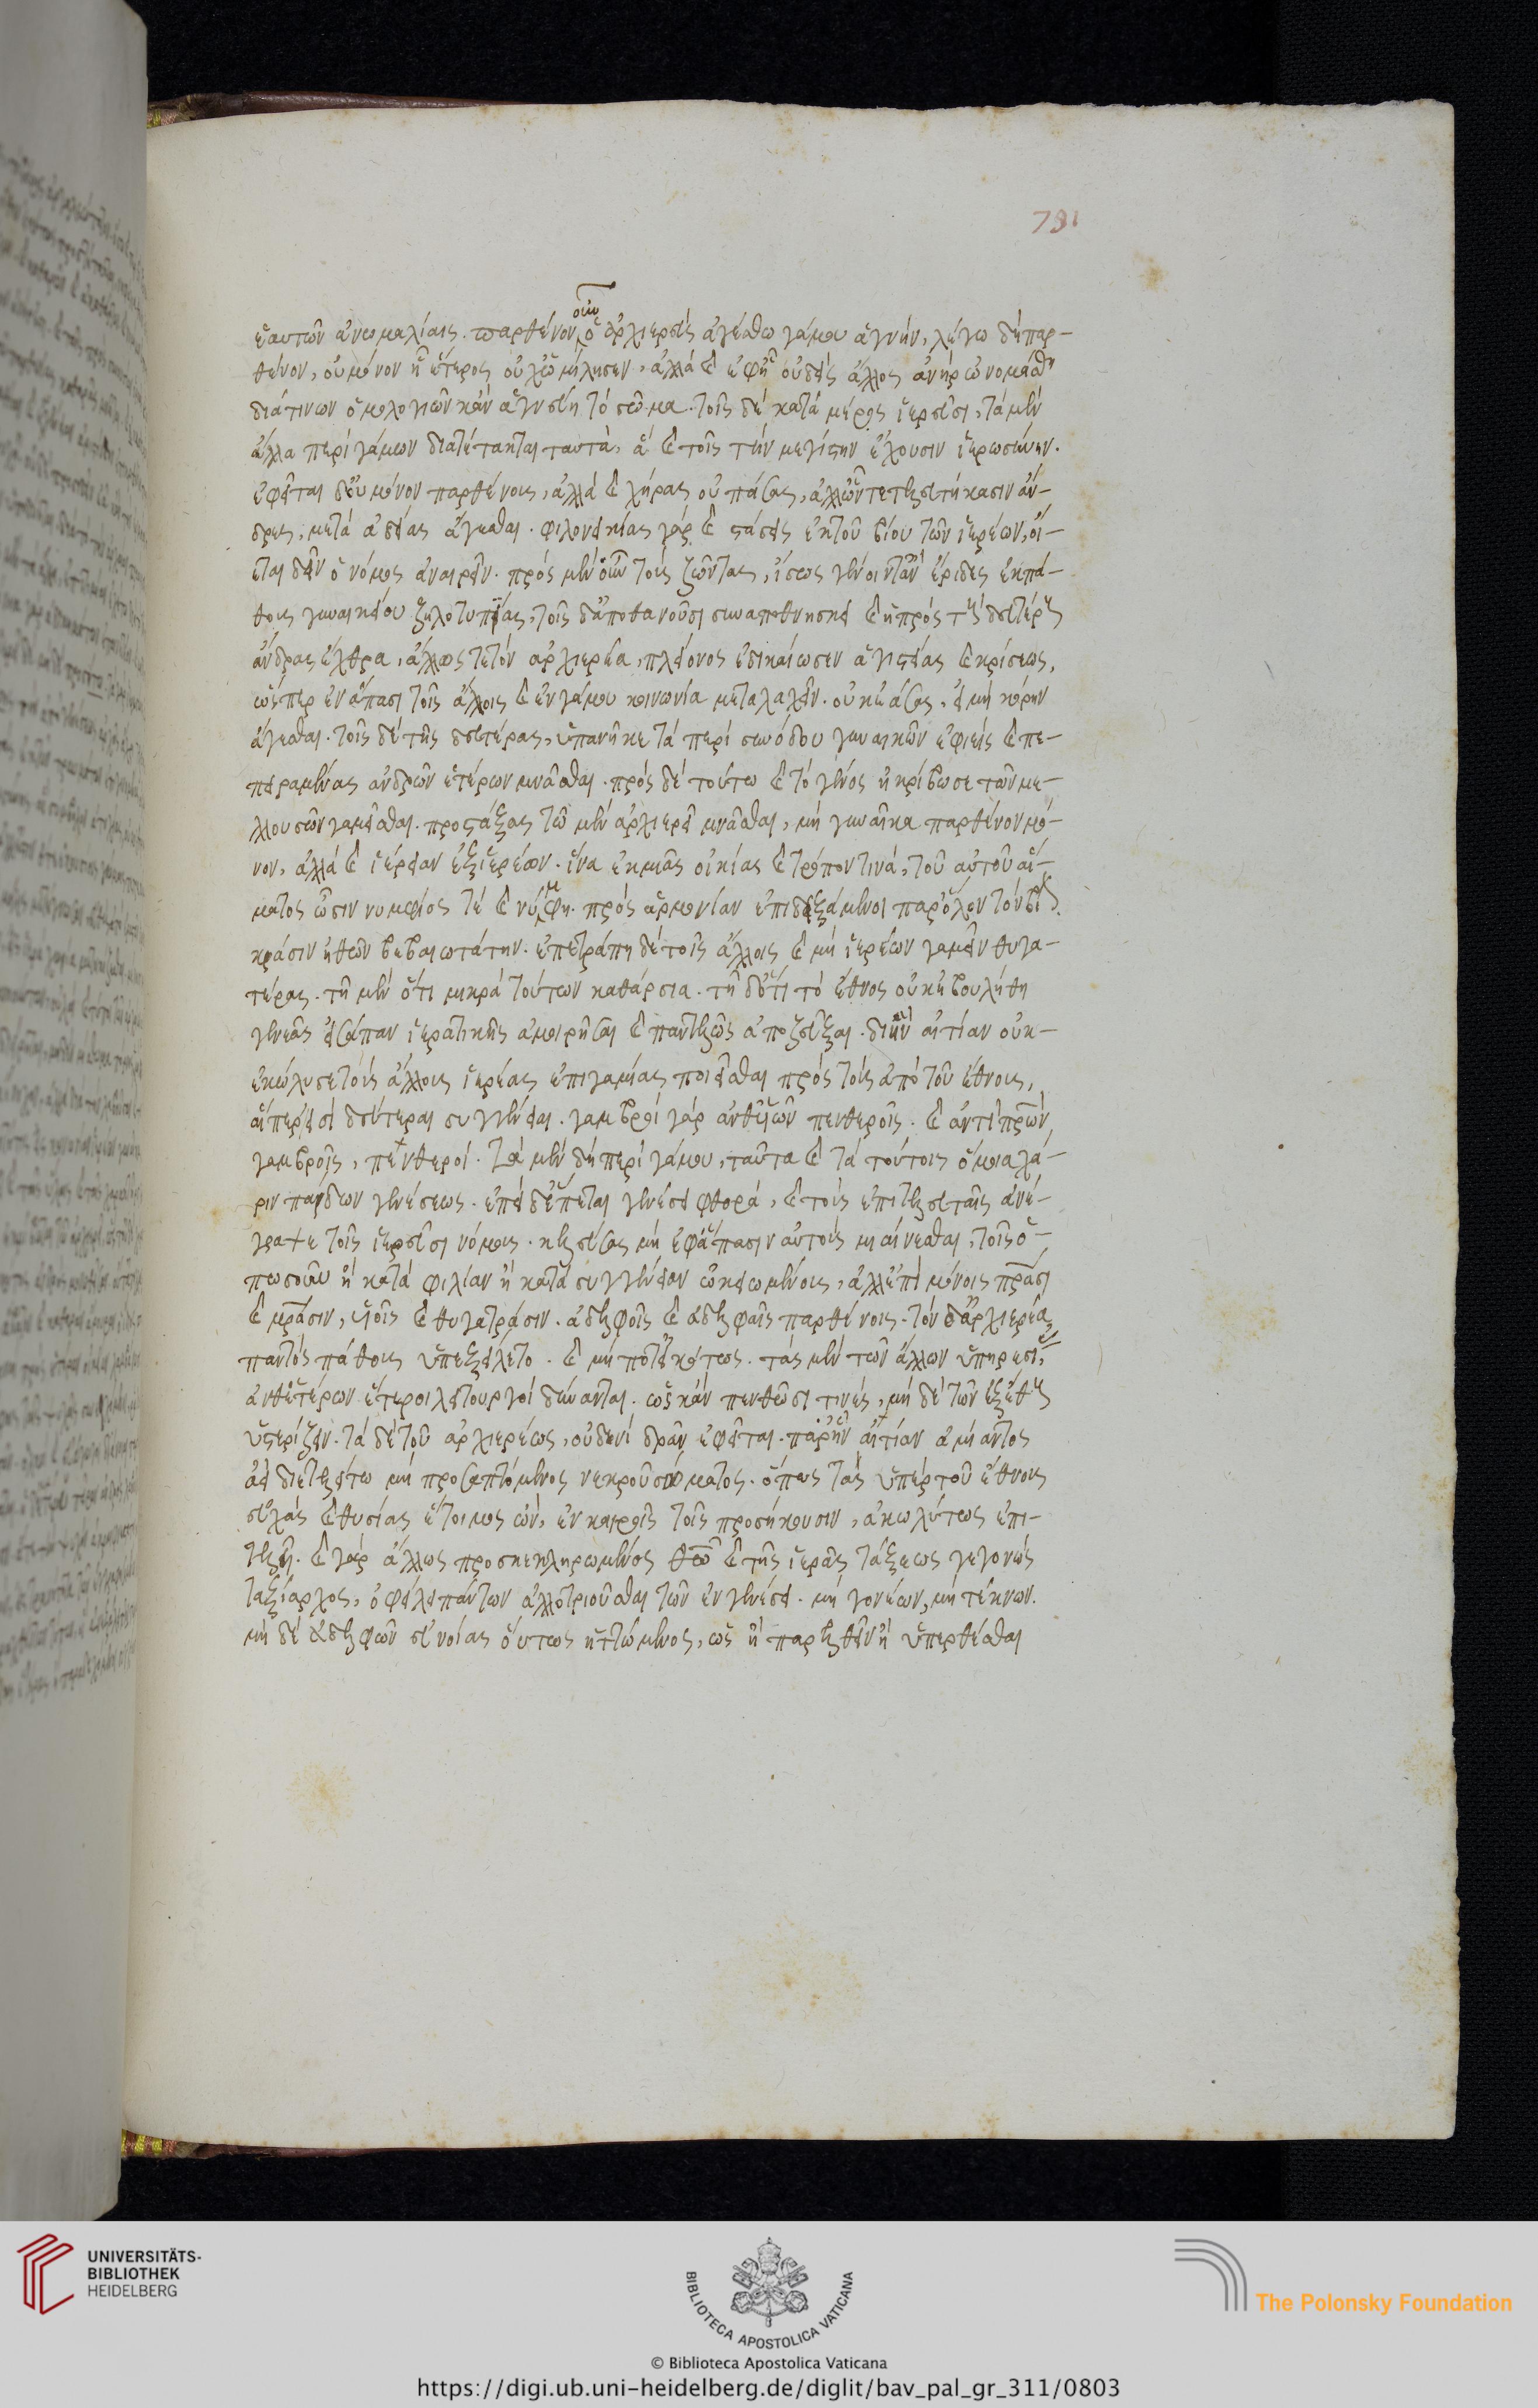 791
ἑαυτῶν ἀνωμαλίαις. παρθένον οὖν ὁ ἀρχιερεὺς ἀγέσθω γάμου ἁγνήν, λέγω δὲ παρ-
θένον, οὐ μόνον ᾗ ἕτερος οὐχ ὡμίλησεν, ἀλλὰ καὶ ἐφ' ᾗ οὐδεὶς ἄλλος ἀνὴρ ὠνομάσθη
διά τινων ὁμολογιῶν κἂν ἁγνεύῃ τὸ σῶμα. τοῖς δὲ κατὰ μέρος ἱερεῦσι, τὰ μὲν
ἄλλα περὶ γάμων διατέτακται ταυτὰ, ἃ καὶ τοῖς τὴν μεγίστην ἔχουσιν ἱερωσύνην.
ἐφεῖται δ' οὐ μόνον παρθένους, ἀλλὰ καὶ χήρας οὐ πάσας, ἀλλ' ὧν τετελευτήκασιν ἄν-
δρες, μετὰ ἀδείας ἄγεσθαι. φιλονεικίας γὰρ καὶ στάσεις ἐκ τοῦ βίου τῶν ἱερέων, οἴ-
εται δεῖν ὁ νόμος ἀναιρεῖν. πρὸς μὲν οὖν τοὺς ζῶντας, ἴσως γένοιντ' ἂν ἔριδες ἐκ πά-
θους γυναικείου ζηλοτυπίας, τοῖς δ' ἀποθανοῦσι συναποθνήσκει καὶ ἡ πρὸς τοὺς δευτέρους
ἄνδρας ἔχθρα, ἄλλως τε τὸν ἀρχιερέα, πλείονος ἐδικαίωσεν ἁγιστείας καὶ κρίσεως,
ὥσπερ ἐν ἅπασι τοῖς ἄλλοις καὶ ἐν γάμου κοινωνία μεταλαχεῖν. οὐκ ἐάσας, εἰ μὴ κόρην
ἄγεσθαι. τοῖς δὲ τῆς δευτέρας, ὑπανῆκε τὰ περὶ συνόδου γυναικῶν ἐφιεὶς καὶ πε-
πειραμένας ἀνδρῶν ἑτέρων μνᾶσθαι. πρὸς δὲ τούτω καὶ τὸ γένος ἠκρίβωσε τῶν με-
λλουσῶν γαμεῖσθαι. προστάξας τῶ μὲν ἀρχιερεῖ μνᾶσθαι, μὴ γυναῖκα παρθένον μό-
νον, ἀλλὰ καὶ ἱέρειαν ἐξ ἱερέων. ἵνα ἐκ μιᾶς οἰκίας καὶ τρόπον τινὰ, τοῦ αὐτοῦ αἵ-
ματος ὦσιν νυμφίος τὲ καὶ νύμφη. πρὸς ἁρμονίαν ἐπιδειξάμενοι παρ' ὅλον τὸν βίον
κράσιν ἠθῶν βεβαιωτάτην. ἐπετράπη δὲ τοῖς ἄλλοις καὶ μὴ ἱερέων γαμεῖν θυγα-
τέρας. τῆ μὲν ὅτι μικρὰ τούτων καθάρσια. τῆ δ' ὅτι τὸ ἔθνος οὐκ ἐβουλήθη
γενεᾶς εἰσάπαν ἱερατικῆς ἀμοιρῆσαι καὶ παντελῶς ἀποζεῦξαι. δι' ἣν αἰτίαν οὐκ-
ἐκώλυσε τοὺς ἄλλους ἱερέας ἐπιγαμίας ποιεῖσθαι πρὸς τοὺς ἀπὸ τοῦ ἔθνους,
αἵπερ εἰσὶ δεύτεραι συγγένειαι. γαμβροὶ γὰρ ἀνθ' υἱῶν πενθεροῖς. καὶ ἀντὶ πρων
γαμβροῖς, πενθεροί. τὰ μὲν δὴ περὶ γάμου, ταῦτα καὶ τὰ τούτοις ὅμοια χά-
ριν παίδων γενέσεως. ἐπεὶ δ' ἕπεται γενέσει φθορὰ, καὶ τοὺς ἐπὶ τελευταῖς ἀνέ-
γραψε τοῖς ἱερεῦσι νόμους. κελεύσας μὴ ἐφ' ἅπασιν αὐτοὺς μιαίνεσθαι, τοῖς ὁ-
πωσοῦν ἢ κατὰ φιλίαν ἢ κατὰ συγγένειαν ὠκειωμένοις, ἀλλ' ἐπὶ μόνοις πρασι
καὶ μρασιν, υἱοῖς καὶ θυγατράσιν. ἀδελφοῖς καὶ ἀδελφαῖς παρθένοις. τὸν δ' ἀρχιερέα
παντὸς πάθους ὑπεξείλετο. καὶ μή ποτ' εἰκότως. τὰς μὲν τῶν ἄλλων ὑπηρεσίας
ἀνθ' ἑτέρων ἕτεροι λειτουργοὶ δύνανται. ὡς κἂν πενθῶσι τινὲς, μὴ δὲ τῶν ἐξ ἔθους
ὑστερίζειν. τὰ δὲ τοῦ ἀρχιερέως, οὐδενὶ δρᾶν ἐφεῖται. παρ' ἣν αἰτίαν ἀμίαντος
ἀεὶ διετελείτω μὴ προσαπτόμενος νεκροῦ σώματος. ὅπως τὰς ὑπὲρ τοῦ ἔθνους
εὐχὰς καὶ θυσίας ἕτοιμος ὢν, ἐν καιροῖς τοῖς προσήκουσιν, ἀκωλύτως ἐπι-
τελῆ. καὶ γὰρ ἄλλως προσκεκληρωμένος θῶ καὶ τῆς ἱερᾶς τάξεως γεγονὼς
ταξίαρχος, ὀφείλει πάντων ἀλλοτριοῦσθαι τῶν ἐν γενέσει. μὴ γονέων, μὴ τέκνων.
μὴ δὲ ἀδελφῶν εὐνοίας οὕτως ἡττώμενος, ὡς ἢ παρελθεῖν ἢ ὑπερθέσθαι
UNIVERSITÄTS-
BIBLIOTHEK
HEIDELBERG
BIBLIOTECA APOSTOLICA VATICANA
The Polonsky Foundation
© Biblioteca Apostolica Vaticana
https://digi.ub.uni-heidelberg.de/diglit/bav_pal_gr_311/0803